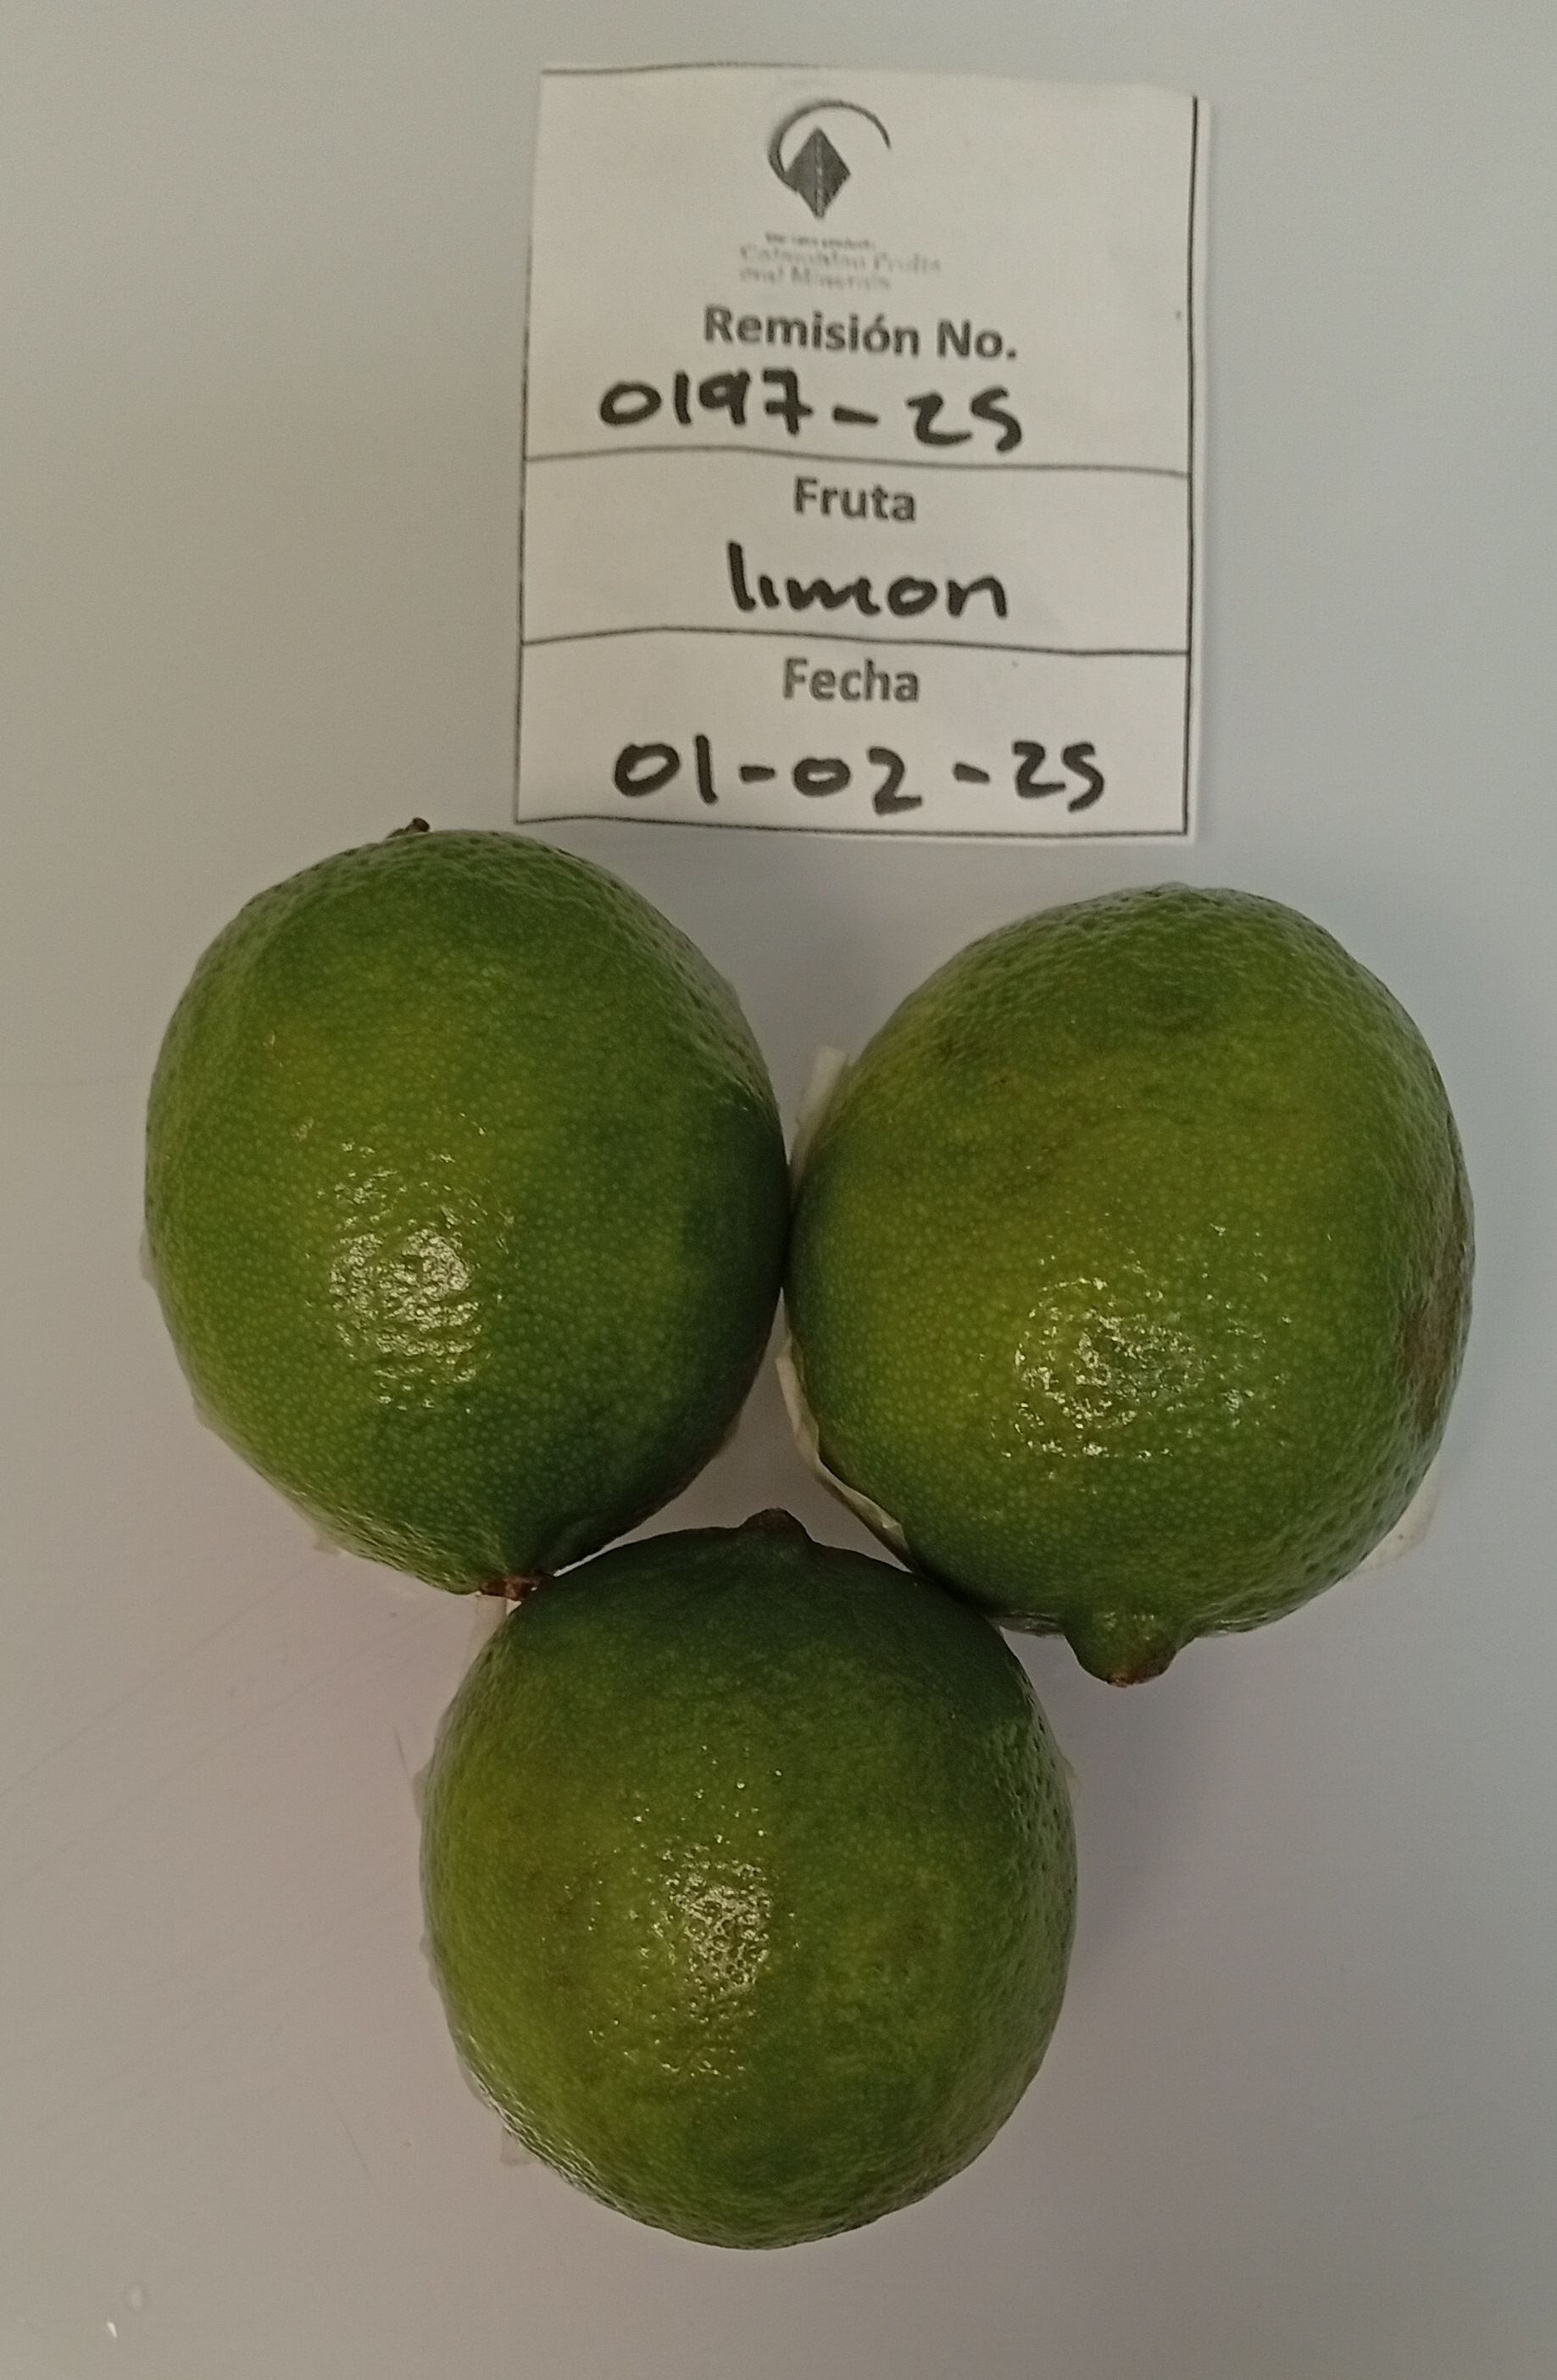 Colombian Fruits
and Minerals
Remisión No.
0197-25
Fruta
limon
Fecha
01-02-25